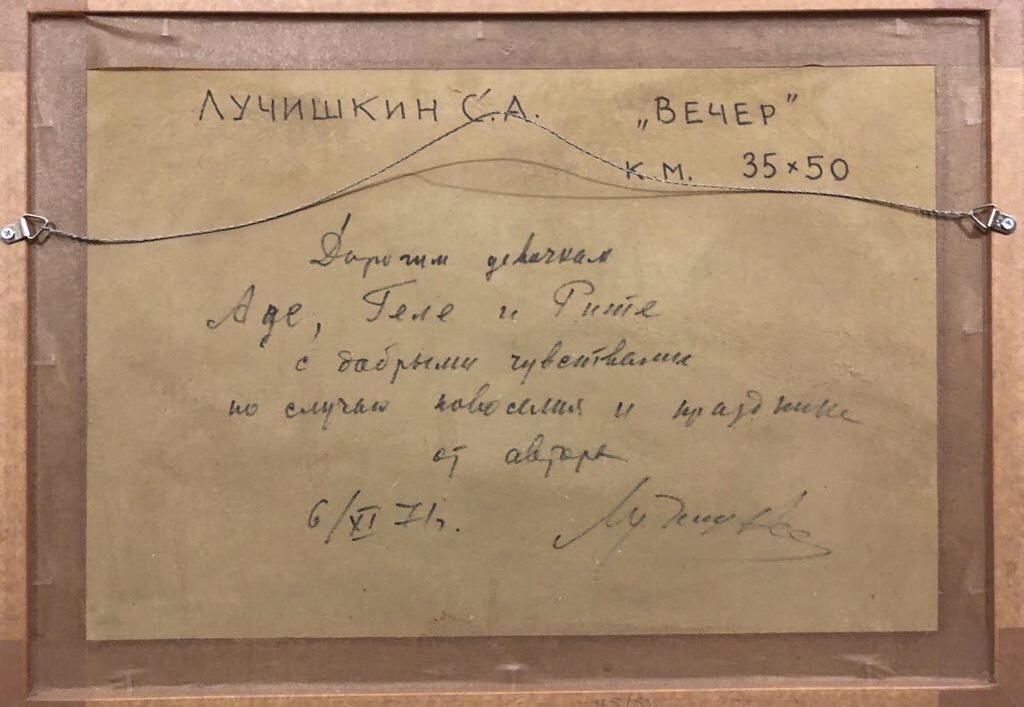 ЛУЧИШКИН С.А. „ВЕЧЕР"
К.М. 35×50
Дорогим девочкам
Аде, Геле и Рите
с добрыми чувствами
по случаю новоселия и праздника
от автора
6/XI 71г.